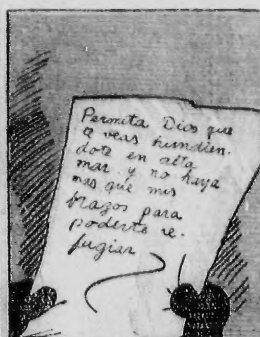 Permita Dios que
te veas hundien-
dote en alta
mar y no haya
mas que mis
brazos para
poderte re-
fugiar